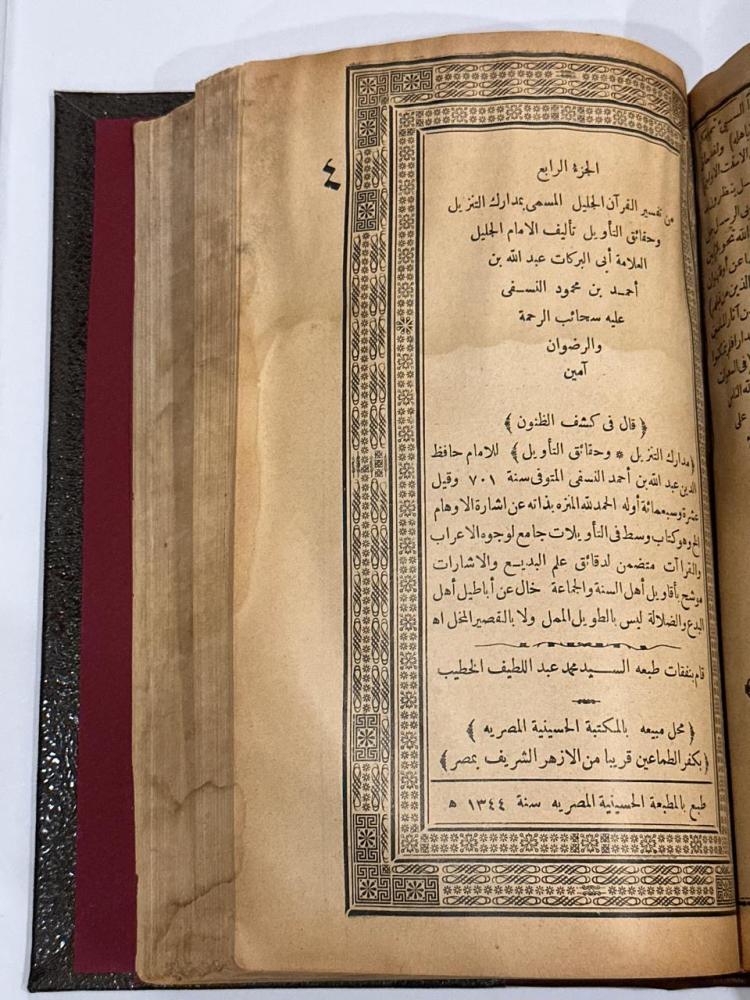 ٤
الجزء الرابع
من تفسير القرآن الجليل المسمى بمدارك التنزيل
وحقائق التأويل تأليف الامام الجليل
العلامة أبى البركات عبد الله بن
أحمد بن محمود النسفى
عليه سحائب الرحمة
والرضوان
آمين
﴿ قال فى كشف الظنون ﴾
﴿مدارك التنزيل * وحقائق التأويل﴾ للامام حافظ
الدين عبد الله بن أحمد النسفى المتوفى سنة ٧٠١ وقيل
عشرة وسبعمائة أوله الحمد لله المنزه بذاته عن اشارة الاوهام
الخ وهو كتاب وسط فى التأويلات جامع لوجوه الاعراب
والقرا آت متضمن لدقائق علم البديع والاشارات
موشح بأقاويل أهل السنة والجماعة خال عن أباطيل أهل
البدع والضلالة ليس بالطويل الممل ولا بالقصير المخل اه
قام بنفقات طبعه السيد محمد عبد اللطيف الخطيب
﴿ محل مبيعه بالمكتبة الحسينية المصريه ﴾
﴿بكفر الطماعين قريبا من الازهر الشريف بمصر﴾
طبع بالمطبعة الحسينية المصريه سنة ١٣٤٤ ه